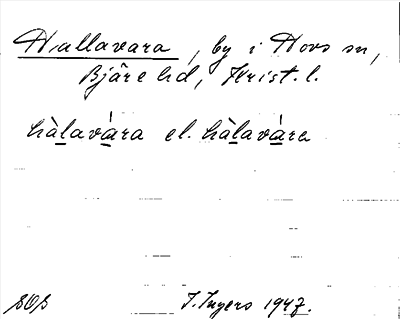 Hallavara, by i Hovs sn,
Bjäre hd, Krist. l.
hàlavára el. hàlavára
SOs
I. Ingers 1947.